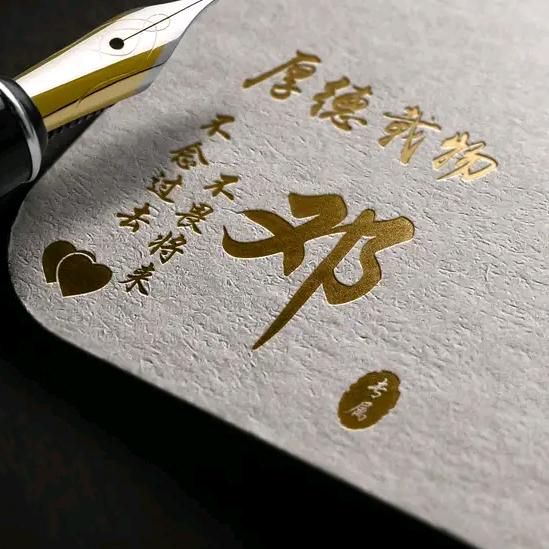 厚德载物
不念过去
不畏将来
邓
专属